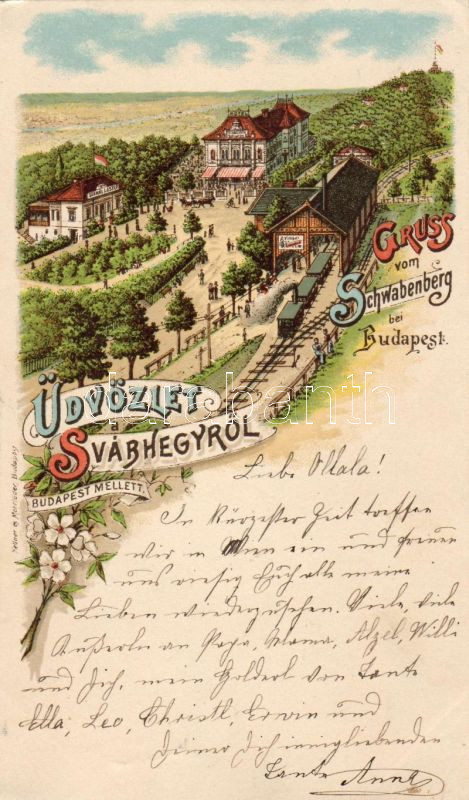 GRUSS
vom
Schwabenberg
bei
Budapest.
ÜDVÖZLET
a
SVÁBHEGYRŐL
BUDAPEST MELLETT
Liebe Ottala!
In kürzester Zeit treffen
wir in Wien ein und freuen
uns riesig Euch alle meine
Lieben wiederzusehen. Viele, viele
an Papa, Mama, Willi
und Dich, mein Golderl von Tante
Ella, Leo, Christl, Erwin und
Deiner Dich innigliebenden
Tante Anna